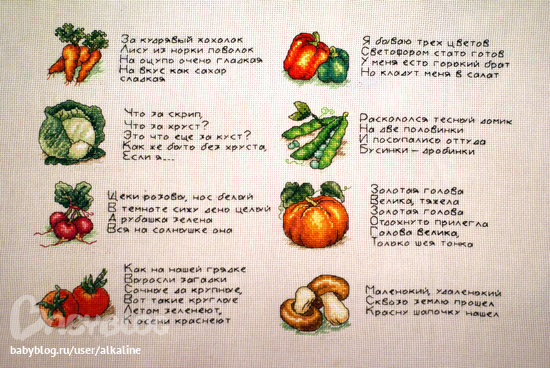 За кудрявый хохолок
Лису из норки поволок
На ощупь очень гладкая
На вкус как сахар
сладкая
Что за скрип,
Что за хруст?
Это что еще за куст?
Как же быть без хруста,
Если я...
Щеки розовы, нос белый
В темноте сижу день целый
А рубашка зелена
Вся на солнышке она
Как на нашей грядке
Выросли загадки
Сочные да крупные,
Вот такие круглые
Летом зеленеют,
К осени краснеют
Я бываю трех цветов
Светофором стать готов
У меня есть горький брат
Но кладут меня в салат
Раскололся тесный домик
На две половинки
И посыпались оттуда
Бусинки – дробинки
Золотая голова
Велика, тяжела
Золотая голова
Отдохнуть прилегла
Голова велика,
Только шея тонка
Маленький, удаленький
Сквозь землю прошел
Красну шапочку нашел
babyblog.ru/user/alkaline